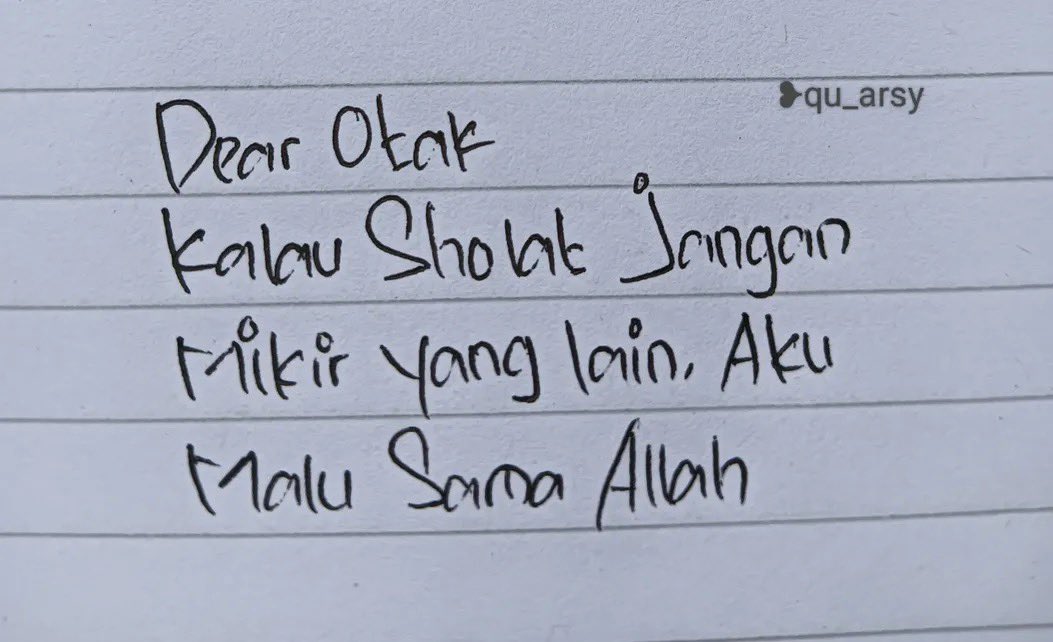 qu_arsy
Dear Otak
Kalau Sholat Jangan
Mikir yang lain. Aku
Malu Sama Allah